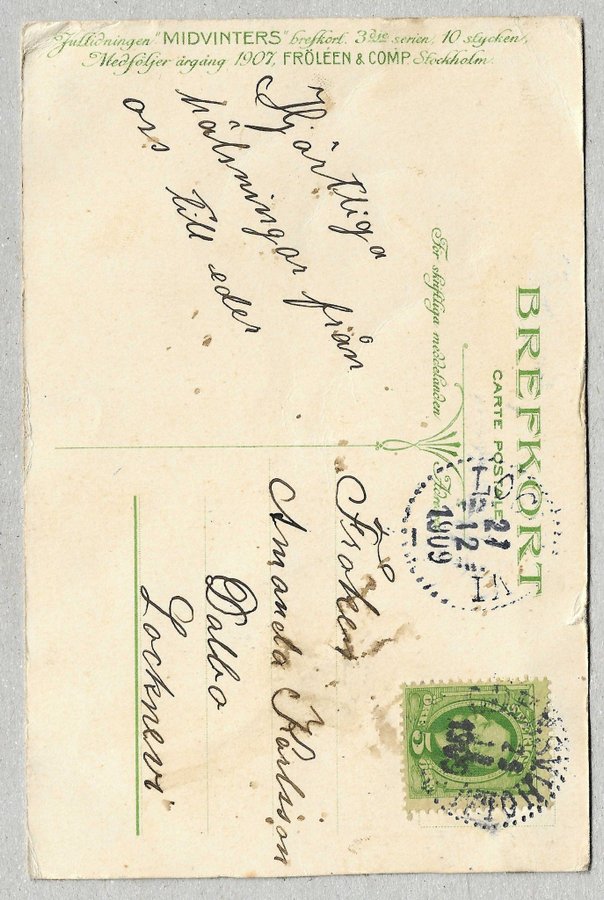 Jultidningen "MIDVINTERS" brefkort. 3dje serien, 10 stycken.
Medföljer årgång 1907, FRÖLÉEN & COMP Stockholm.
BREFKORT
CARTE POSTALE
För skriftliga meddelanden.
Hjärtliga
hälsningar från
oss till eder
Fröken
Amanda Karlsson
Dalbo
Locknevi
21
12
1909
5